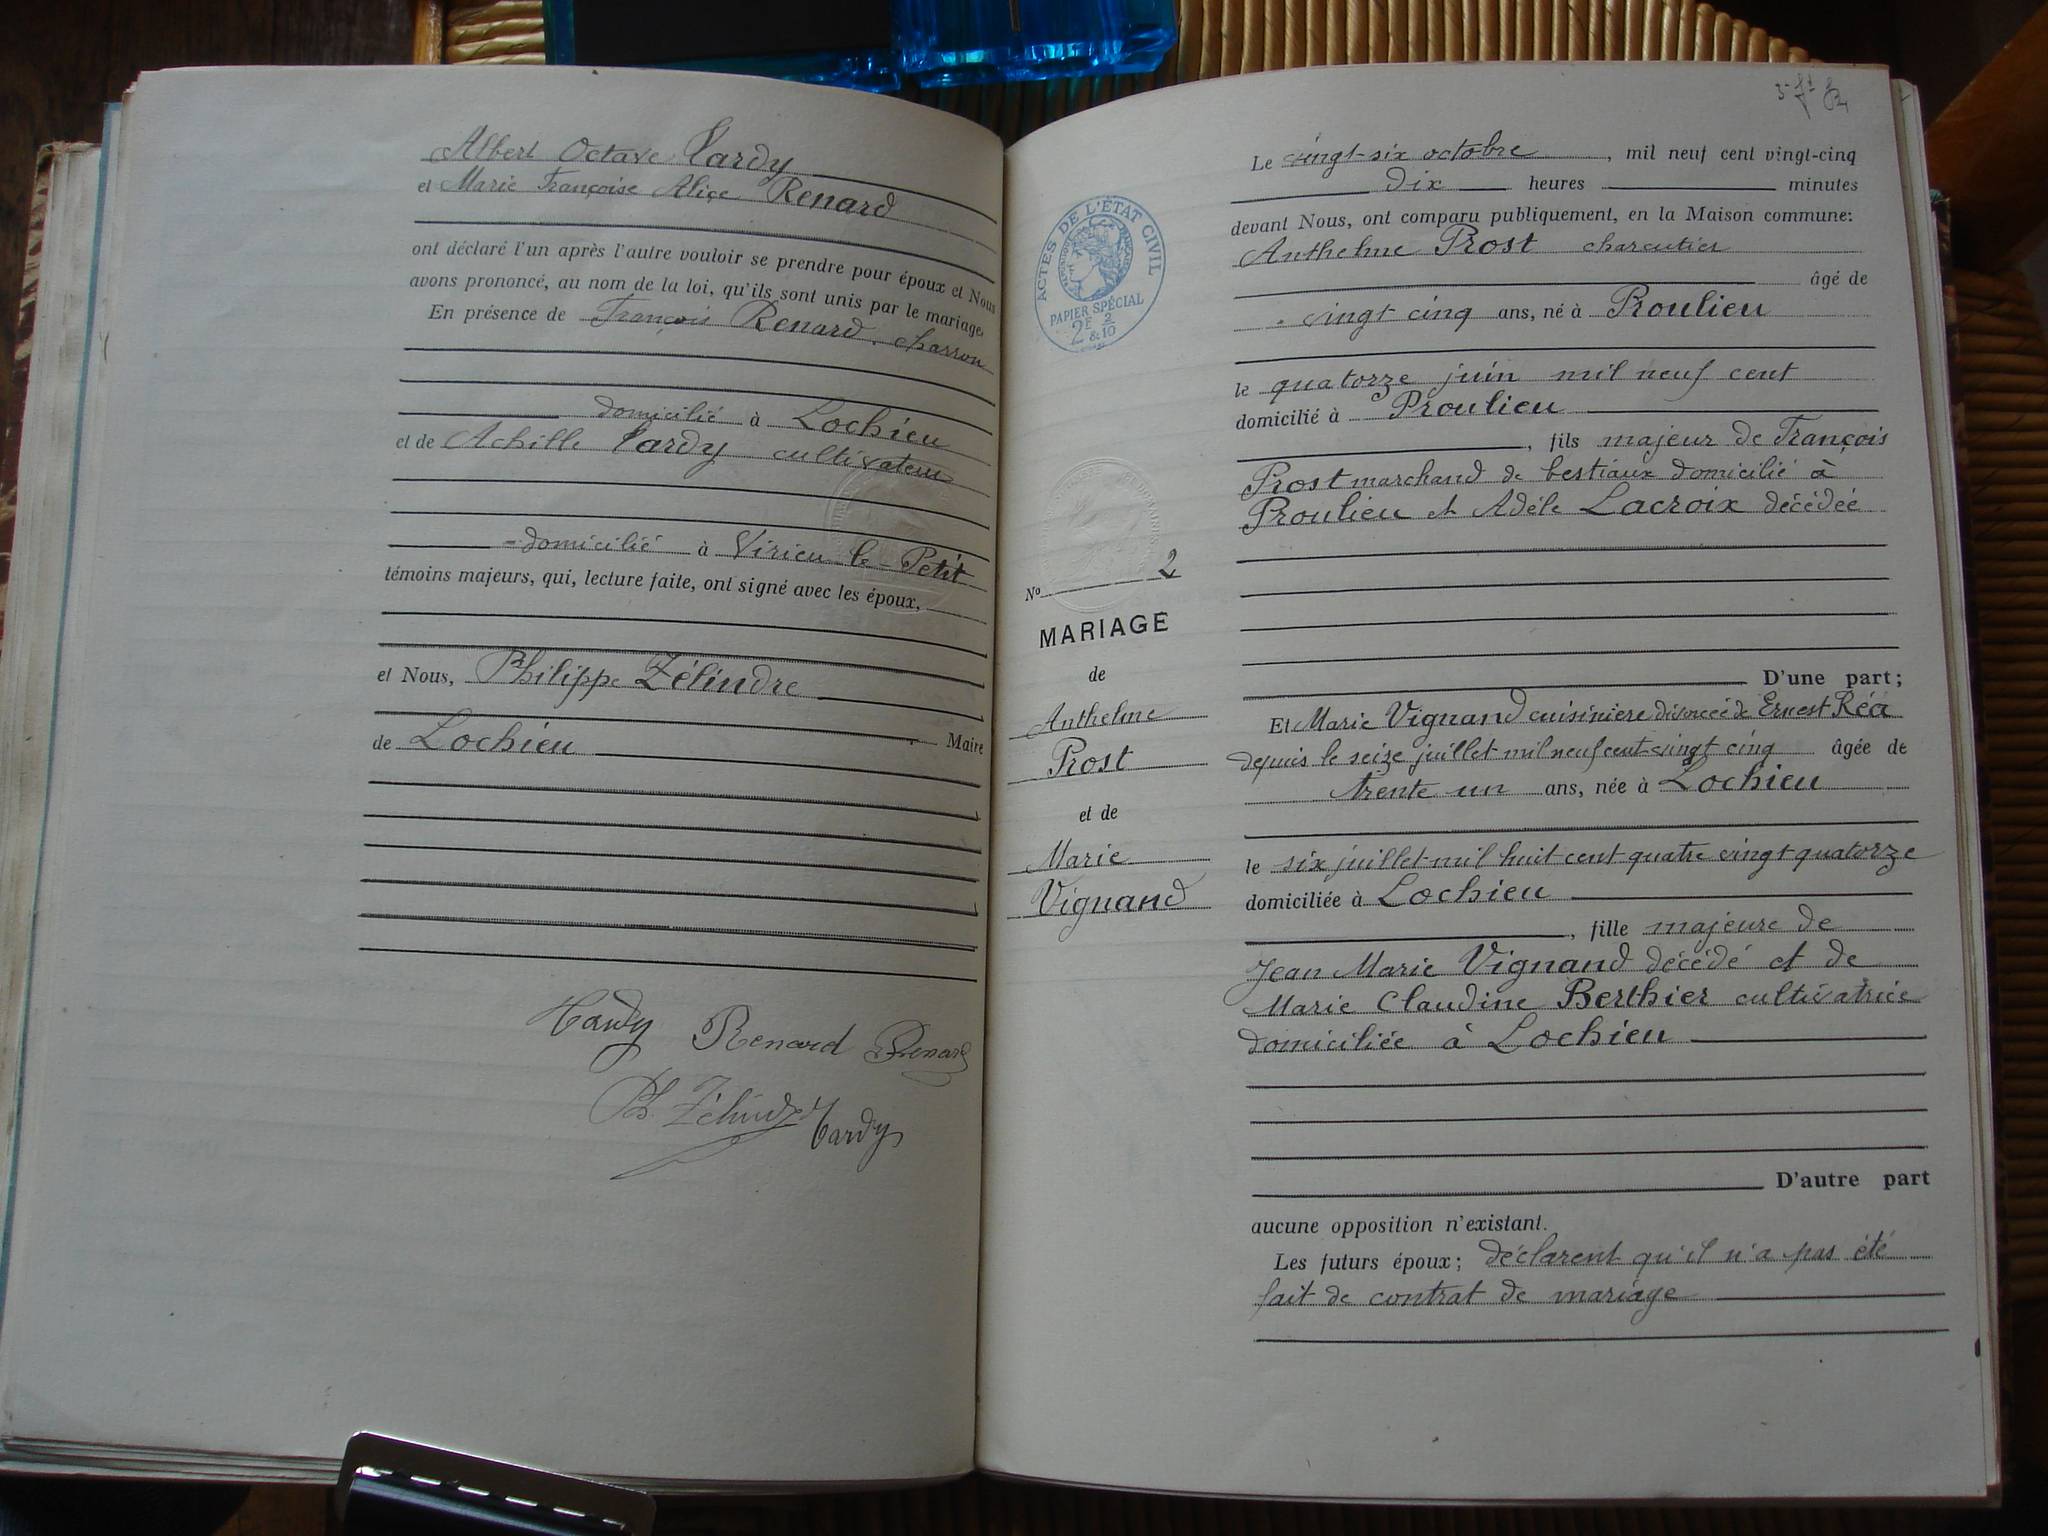 Albert Octave Tardy
et Marie Françoise Alice Renard
ont déclaré l'un après l'autre vouloir se prendre pour époux et Nous
avons prononcé, au nom de la loi, qu'ils sont unis par le mariage,
En présence de François Renard, charron
domicilié à Lochieu
et de Achille Tardy cultivateur
domicilié à Virieu le-Petit
témoins majeurs, qui, lecture faite, ont signé avec les époux,
et Nous, Philippe Zélindre
de Lochieu Maire
Tardy Renard Renard
Ph. Zélindre Tardy
ACTES DE L'ÉTAT CIVIL
PAPIER SPÉCIAL
2F 2/10
No 2
MARIAGE
de
Anthelme
Prost
et de
Marie
Vignand
Le vingt-six octobre, mil neuf cent vingt-cinq
dix heures minutes
devant Nous, ont comparu publiquement, en la Maison commune:
Anthelme Prost charcutier
âgé de
vingt cinq ans, né à Proulieu
le quatorze juin mil neuf cent
domicilié à Proulieu
, fils majeur de François
Prost marchand de bestiaux domicilié à
Proulieu et Adèle Lacroix décédée
D'une part;
Et Marie Vignand cuisinière divorcée de Ernest Réa
depuis le seize juillet mil neuf cent vingt cinq âgée de
trente un ans, née à Lochieu
le six juillet mil huit cent quatre vingt quatorze
domiciliée à Lochieu
, fille majeure de
Jean Marie Vignand décédé et de
Marie Claudine Berthier cultivatrice
domiciliée à Lochieu
D'autre part
aucune opposition n'existant.
Les futurs époux; déclarent qu'il n'a pas été
fait de contrat de mariage